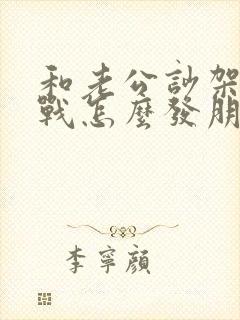 和老公訃架
戰怎麼發朋
李寧顏